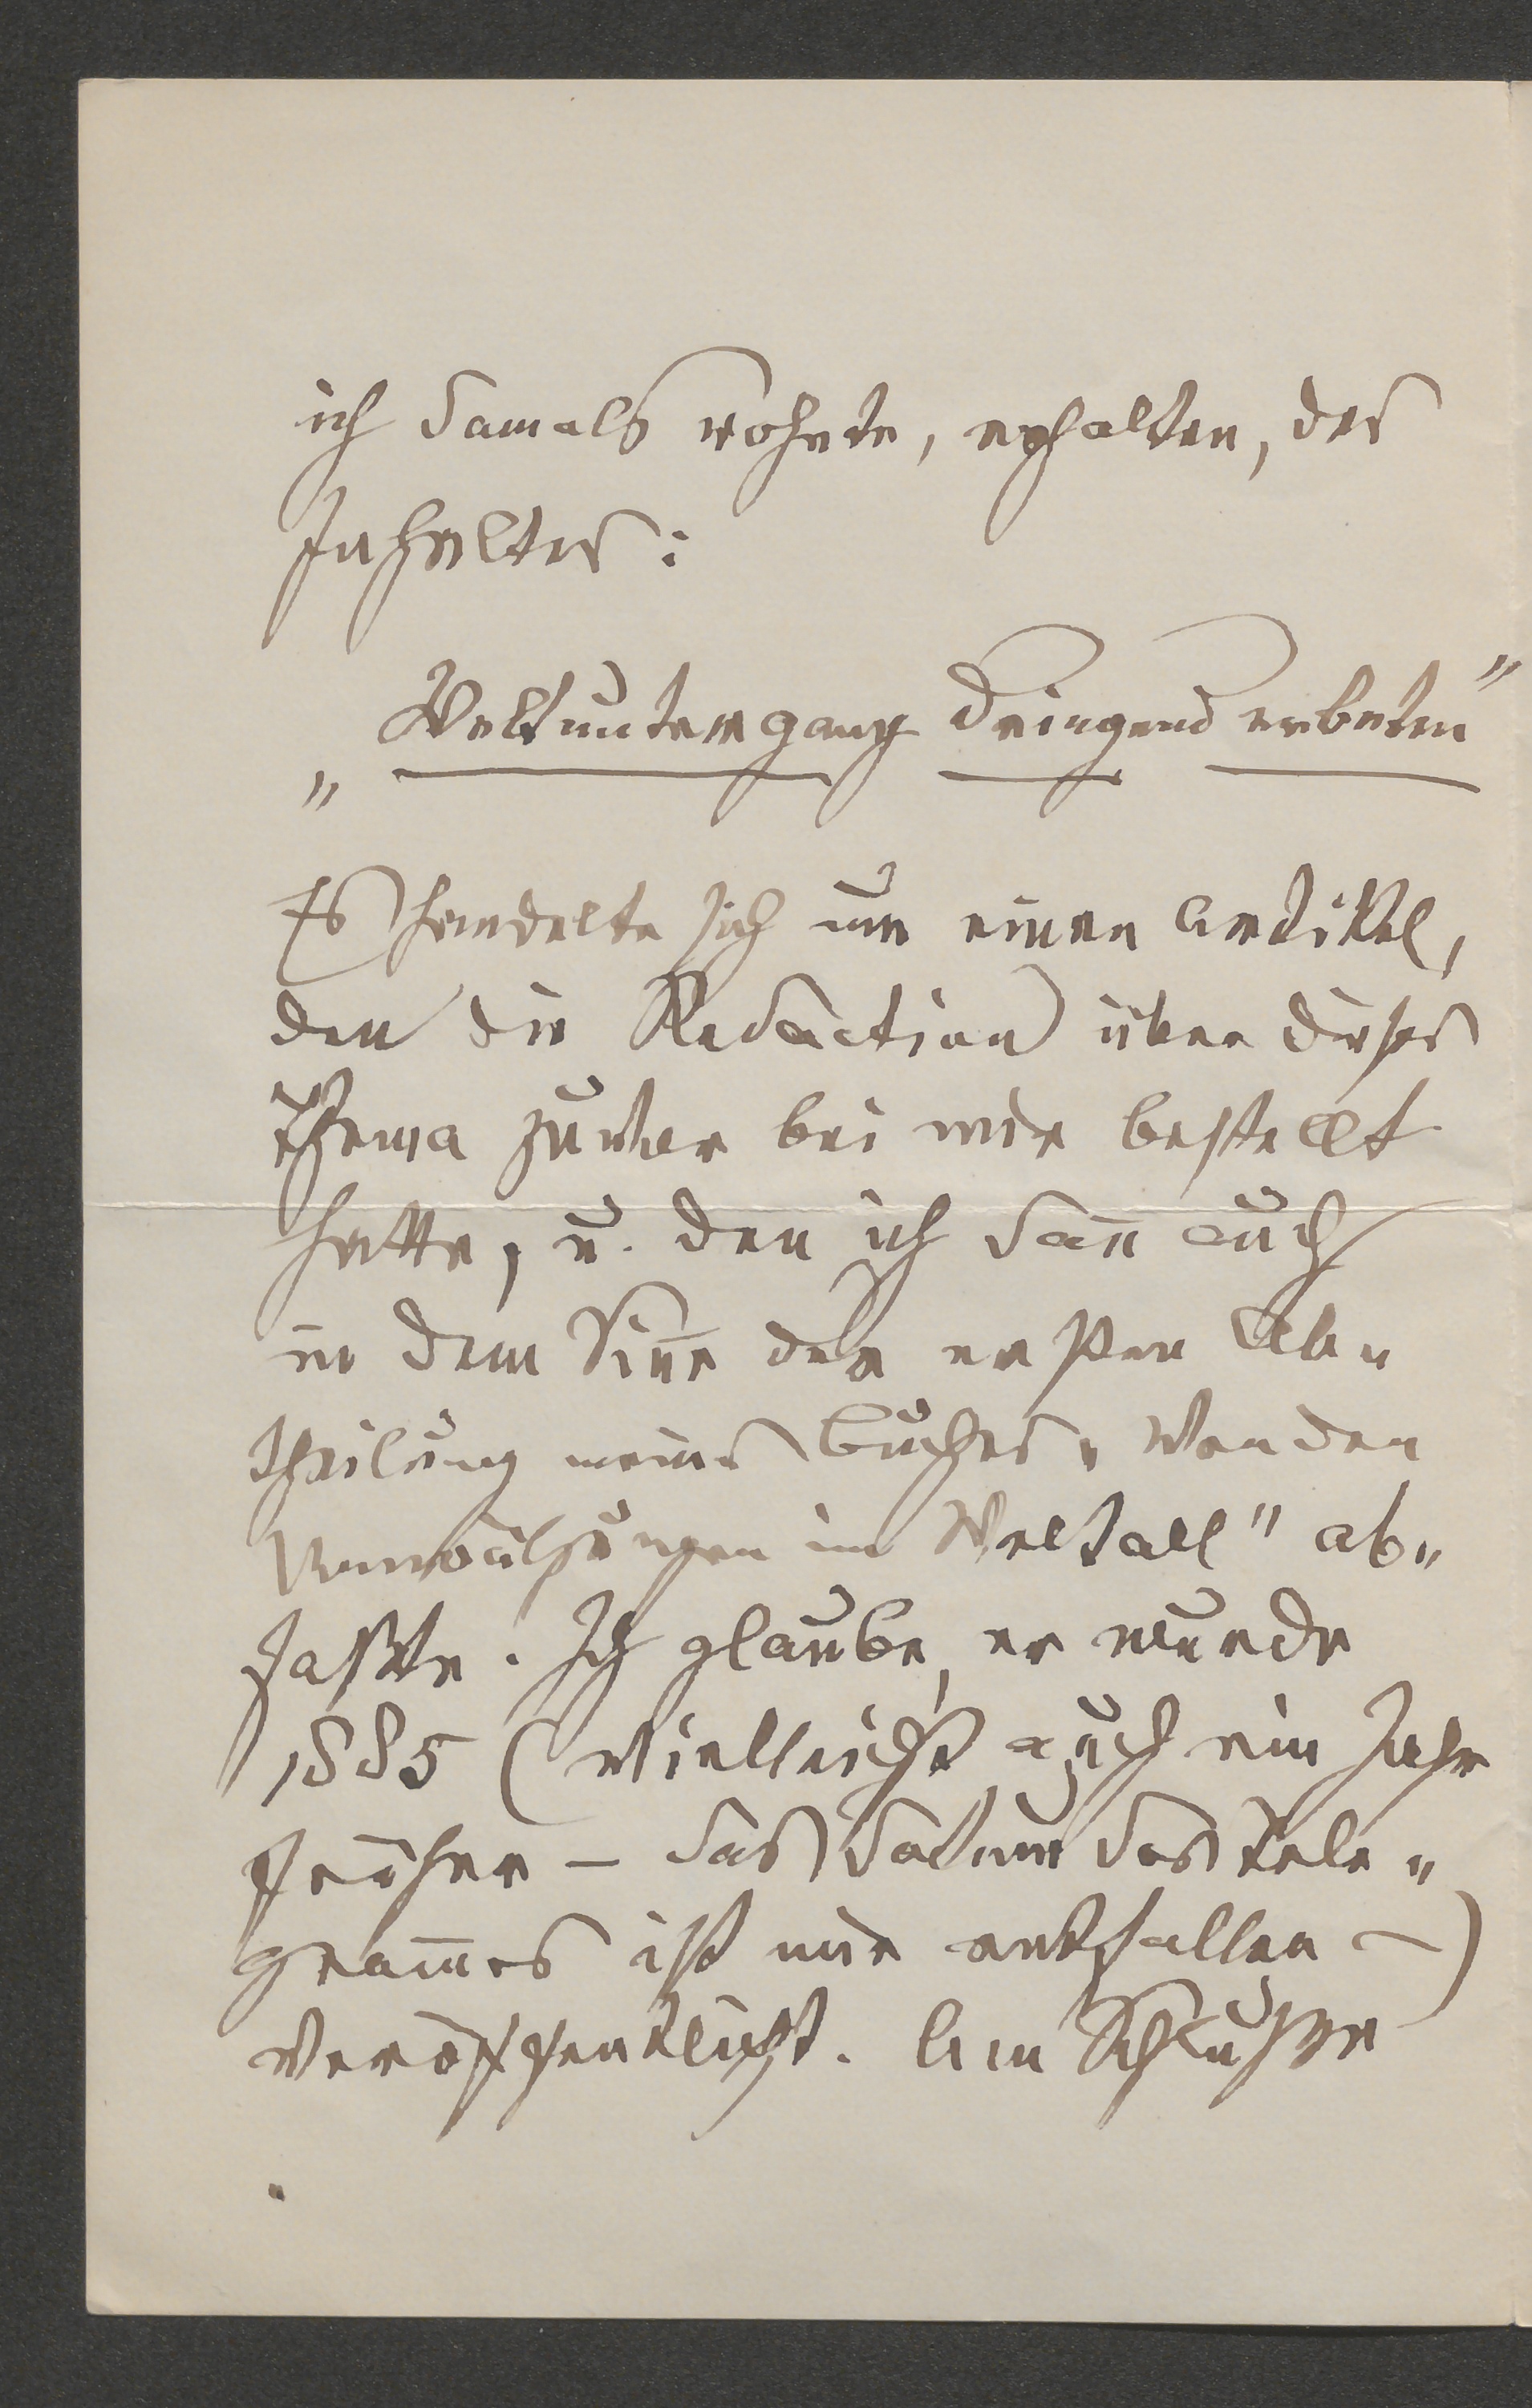 ich damals wohnte, erhalten, des
Inhaltes:
„Weltuntergang dringend erbeten"
Es handelte sich um einen Artikel,
den die Redaction über dieses
Thema zuvor bei mir bestellt
hatte, u. den ich dan̄ auch
in dem Sin̄e der ersten Ab„
theilung meines Buches „Von den
Umwälzungen im Weltall" ab„
faßte. Ich glaube, er wurde
1885 (vielleicht auch ein Jahr
früher – das Datum des Tele„
gram̄es ist mir entfallen –)
veröffentlicht. Am Schluße